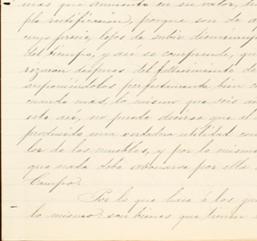 mas que aumenta en su valor, 
ple satisfaccion, porque son de
cuyo precio, lejos de subir disminuy
del tiempo, y asi se comprende, que
despues del fallecimiento de
suponiendolos perfectamente bien
cuando mas, lo mismo que
esto asi, no puede decirse que el
producido una verdadera utilidad
los de los muebles, y por lo mismo
que nada debe abonarse por ella
Campo.
Por lo que hace á los
lo mismo: son bienes que tienen